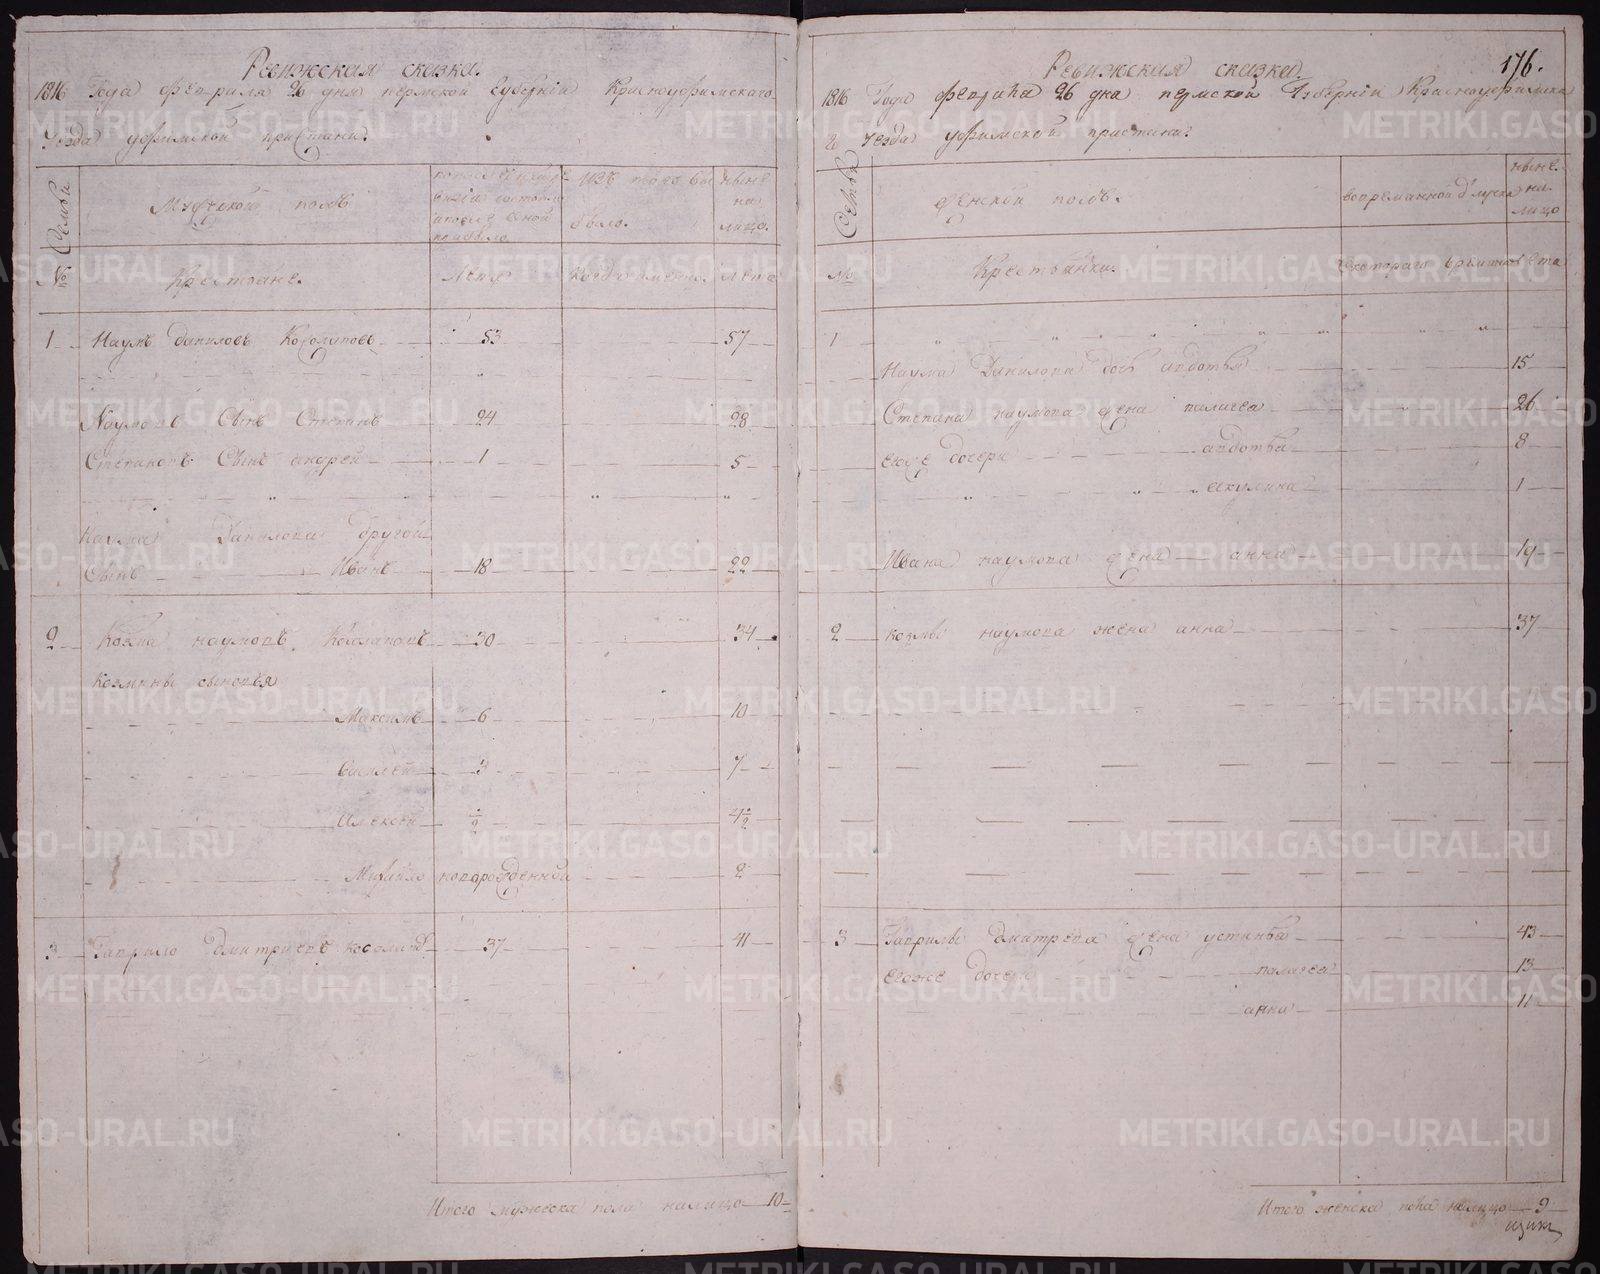 Ревижская сказка.
1816 Года февраля 26 дня пермской Губерніи Красноуфимскаго
Уезда уфимской пристани.
Семьи
Мужской полъ
изъ того вы
было.
ныне
на
лицо.
№
Крестьяне.
Лета
Когда именно.
лета
1 Наумъ даниловъ Косолаповъ 53 57
Наумовъ Сынъ Степанъ 24 28
Степановъ Сынъ андрей 1 5
Наума Данилова другой
Сынъ Иванъ 18 22
2 Козма наумовъ Косолаповъ 30 34
Козмины сыновья
Максимъ 6 10
Василей 3 7
Алексей 1/2 4 1/2
Михайло новорожденной 2
3 Гаврило Дмитриевъ косолаповъ 37 41
Итого мужеска пола налицо 10
176.
Ревижская сказка.
1816 Года февраля 26 дна пермской Губерніи Красноуфимска
го уезда уфимской пристани.
Семьи
женскій полъ.
вовременной отлучке
ныне.
на
лицо
№
Крестьянки.
Скотораго времяни
лета
1
Наума Данилова дочь авдотья 15
Степана наумова жена палагея 26
ево же дочери авдотья 8
акулина 1
Ивана наумова жена анна 19
2 козмы наумова жена анна 37
3 Гаврилы дмитрева жена устинья 43
Егоже дочери палагея 13
анна 11
Итого женска пола налицо 9
METRIKI.GASO-URAL.RU